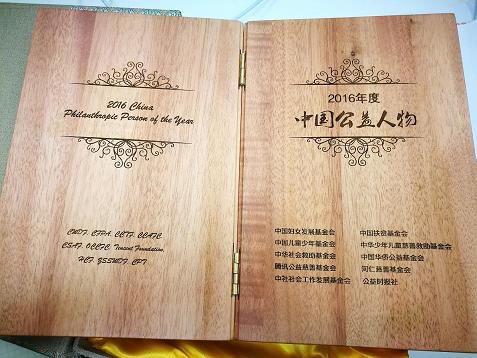 2016 China
Philanthropic Person of the Year
CWDF, CFPA, CCTF, CCAFC,
CSAF, OCCFC, Tencent Foundation,
HCF, ZSSWDF, CPT
2016年度
中国公益人物
中国妇女发展基金会 中国扶贫基金会
中国儿童少年基金会 中华少年儿童慈善救助基金会
中华社会救助基金会 中国华侨公益基金会
腾讯公益慈善基金会 同仁慈善基金会
中社社会工作发展基金会 公益时报社